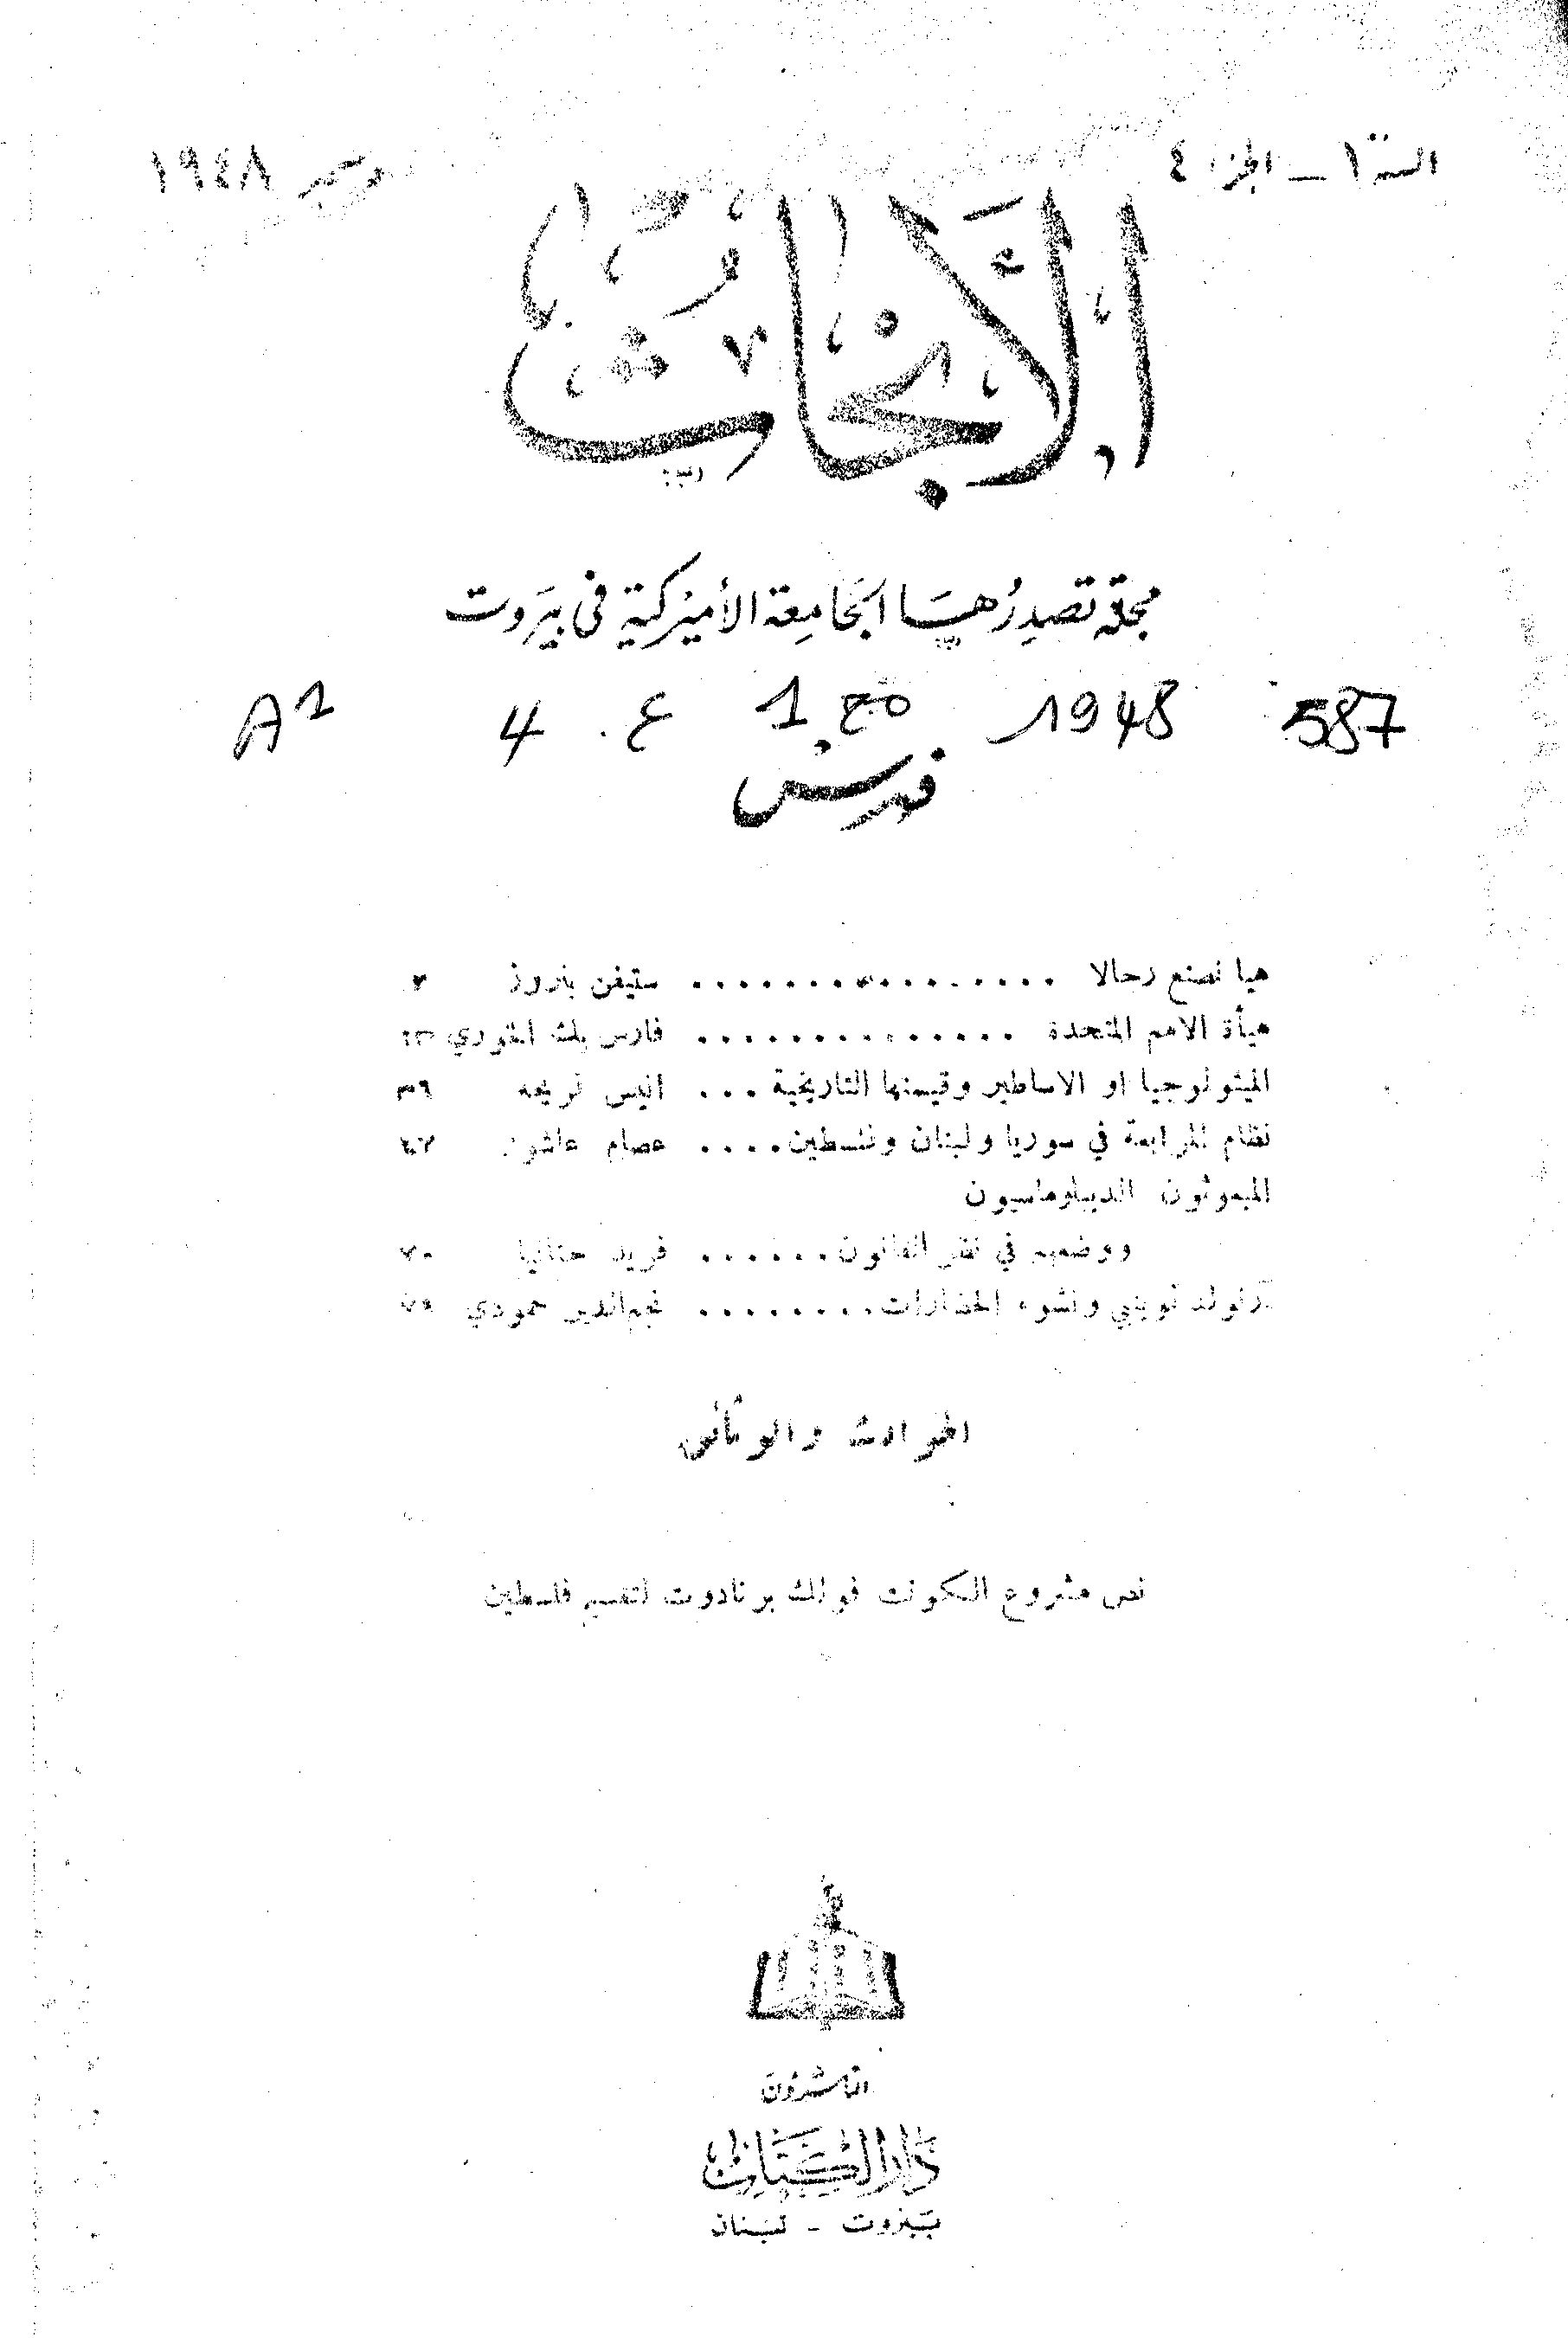 السنة ١ — الجزء ٤
دسمبر ١٩٤٨
الأبحاث
مجلة تصدرها الجامعة الأميركية في بيروت
587 1948 مج 1 ع 4 A1
فهرس
هيا نصنع رجالا ستيفن بنروز
هيأة الامم المتحدة .............. فارس بك الخوري
الميثولوجيا او الاساطير وقيمتها التاريخية ... انيس فريحه ٣٦
نظام المرابعة في سوريا ولبنان وفلسطين .... عصام عاشور
المبعوثون الديبلوماسيون
ووضعهم في نظر القانون ...... فريد حنانيا ٧٠
آرنولد توينبي ونشوء الحضارات ........ نجم الدين حمودي
الحوادث والوثائق
نص مشروع الكونت فولك برنادوت لتقسيم فلسطين
الناشرون
دار الكتاب
بيروت - لبنان